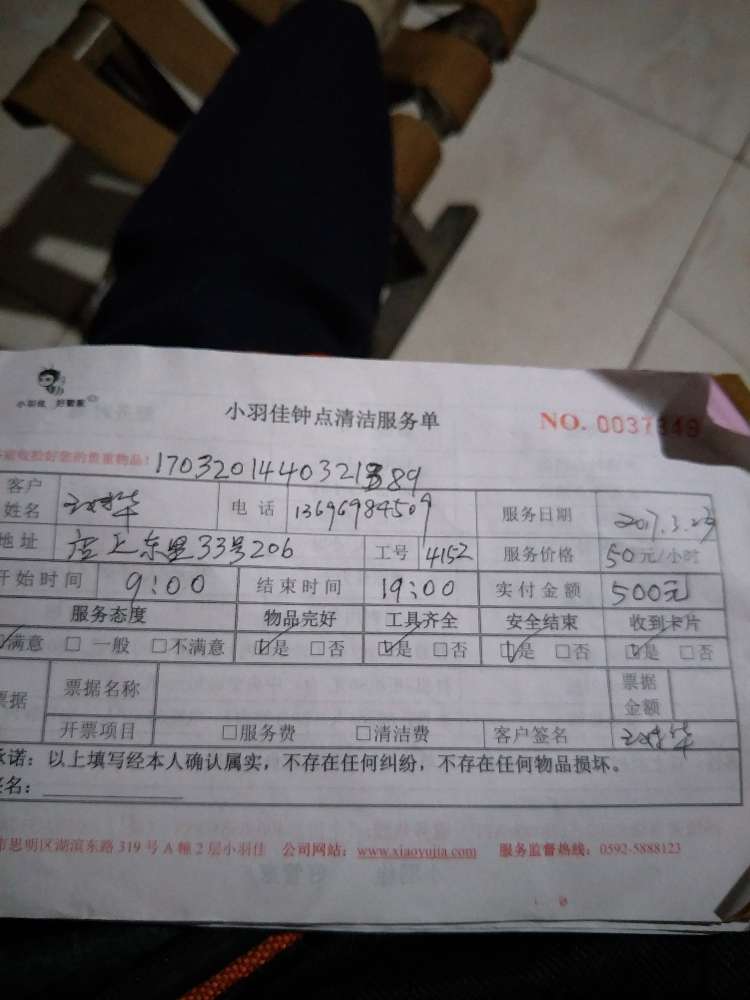 小羽佳 好管家
小羽佳钟点清洁服务单
NO. 0037849
收检好您的贵重物品！
客户姓名 电话 13696984509 服务日期 2017.3.23
地址 店上东里33号206 工号 4152 服务价格 50元/小时
开始时间 9:00 结束时间 19:00 实付金额 500元
服务态度 物品完好 工具齐全 安全结束 收到卡片
满意 □ 一般 □不满意 □是 □否 □是 □否 □是 □否 □是 □否
票据 票据名称 票据金额
开票项目 □服务费 □清洁费 客户签名
承诺：以上填写经本人确认属实，不存在任何纠纷，不存在任何物品损坏。
签名：
市思明区湖滨东路 319 号 A 幢 2 层小羽佳 公司网站：www.xiaoyujia.com 服务监督热线：0592-5888123